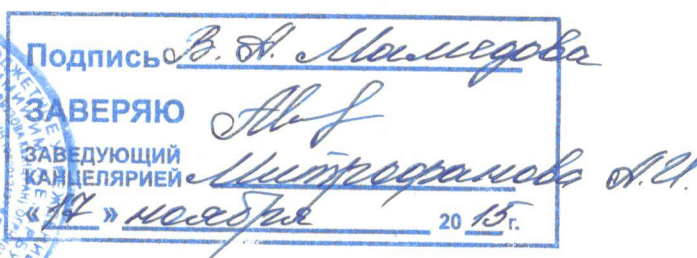 Подпись В. А. Мамедова
ЗАВЕРЯЮ
ЗАВЕДУЮЩИЙ
КАНЦЕЛЯРИЕЙ Митрофанова А.И.
«17» ноября 20 15 г.